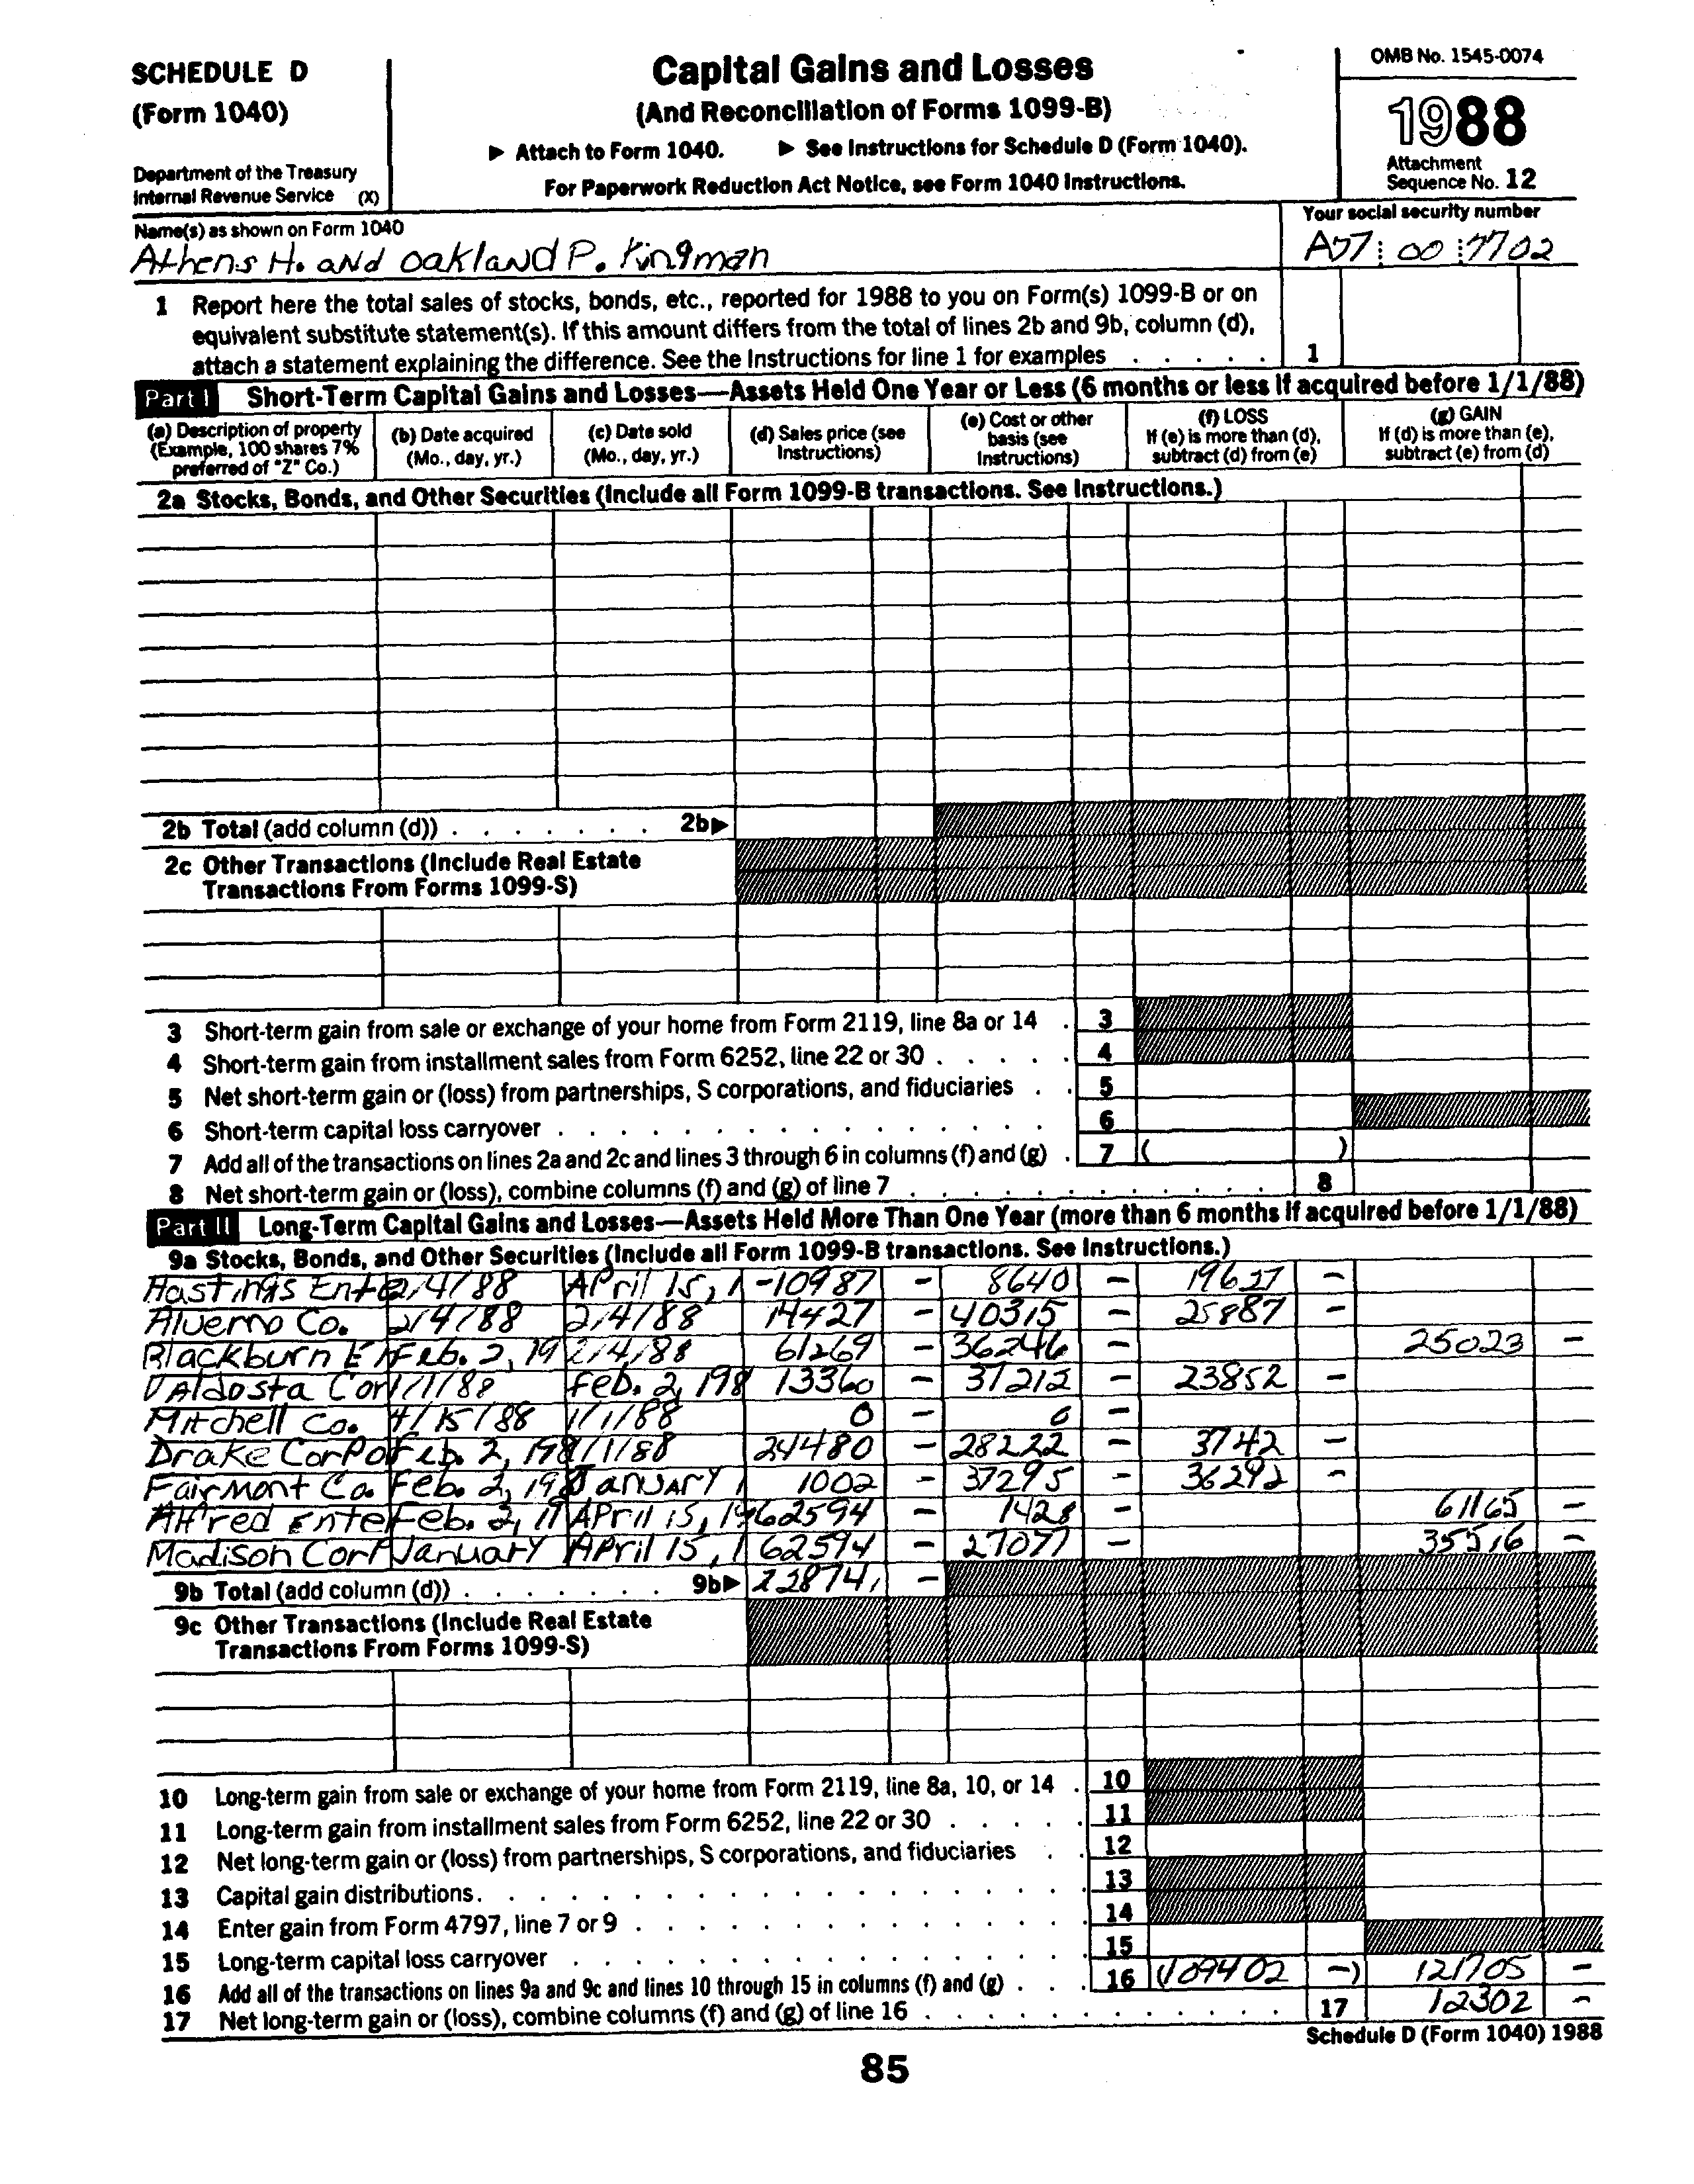 SCHEDULE D
(Form 1040)
Department of the Treasury
Internal Revenue Service (X)
Capital Gains and Losses
(And Reconciliation of Forms 1099-B)
▶ Attach to Form 1040. ▶ See Instructions for Schedule D (Form 1040).
For Paperwork Reduction Act Notice, see Form 1040 Instructions.
OMB No. 1545-0074
1988
Attachment
Sequence No. 12
Name(s) as shown on Form 1040
Athens H. and Oakland P. Kingman
Your social security number
00 7702
1 Report here the total sales of stocks, bonds, etc., reported for 1988 to you on Form(s) 1099-B or on
equivalent substitute statement(s). If this amount differs from the total of lines 2b and 9b, column (d),
attach a statement explaining the difference. See the Instructions for line 1 for examples . . . . . 1
Part I Short-Term Capital Gains and Losses—Assets Held One Year or Less (6 months or less if acquired before 1/1/88)
(a) Description of property
(Example, 100 shares 7%
preferred of "Z" Co.)
(b) Date acquired
(Mo., day, yr.)
(c) Date sold
(Mo., day, yr.)
(d) Sales price (see
Instructions)
(e) Cost or other
basis (see
Instructions)
(f) LOSS
If (e) is more than (d),
subtract (d) from (e)
(g) GAIN
If (d) is more than (e),
subtract (e) from (d)
2a Stocks, Bonds, and Other Securities (Include all Form 1099-B transactions. See Instructions.)
2b Total (add column (d)) . . . . . . . 2b▶
2c Other Transactions (Include Real Estate
Transactions From Forms 1099-S)
3 Short-term gain from sale or exchange of your home from Form 2119, line 8a or 14 . 3
4 Short-term gain from installment sales from Form 6252, line 22 or 30 . . . . . 4
5 Net short-term gain or (loss) from partnerships, S corporations, and fiduciaries . . 5
6 Short-term capital loss carryover . . . . . . . . . . . . . . . 6
7 Add all of the transactions on lines 2a and 2c and lines 3 through 6 in columns (f) and (g) . 7 ( )
8 Net short-term gain or (loss), combine columns (f) and (g) of line 7 . . . . . . . . . . . . 8
Part II Long-Term Capital Gains and Losses—Assets Held More Than One Year (more than 6 months if acquired before 1/1/88)
9a Stocks, Bonds, and Other Securities (Include all Form 1099-B transactions. See Instructions.)
Hastings Ente 2/4/88 April 15, 1 -10987 - 8640 - 19627 -
Alverno Co. 2/4/88 2/4/88 14427 - 40315 - 25887 -
Blackburn En Feb. 2, 19 2/4/88 61269 - 36246 - 25023 -
Valdosta Cor 1/1/88 Feb. 2, 198 13360 - 37212 - 23852 -
Mitchell Co. 4/15/88 1/1/88 0 - 0 -
Drake Corpo Feb. 2, 198 1/1/88 24480 - 28222 - 3742 -
Fairmont Co. Feb. 2, 198 January 1 1002 - 37295 - 36292 -
Alfred Ente Feb. 2, 19 April 15, 19 62594 - 1428 - 61165 -
Madison Corp January April 15, 1 62594 - 27077 - 35516 -
9b Total (add column (d)) . . . . . . . 9b▶ 228741 -
9c Other Transactions (Include Real Estate
Transactions From Forms 1099-S)
10 Long-term gain from sale or exchange of your home from Form 2119, line 8a, 10, or 14 . 10
11 Long-term gain from installment sales from Form 6252, line 22 or 30 . . . . . 11
12 Net long-term gain or (loss) from partnerships, S corporations, and fiduciaries . . 12
13 Capital gain distributions . . . . . . . . . . . . . . . . . 13
14 Enter gain from Form 4797, line 7 or 9 . . . . . . . . . . . . . 14
15 Long-term capital loss carryover . . . . . . . . . . . . . . . 15
16 Add all of the transactions on lines 9a and 9c and lines 10 through 15 in columns (f) and (g) . . 16 (109402 -) 121705 -
17 Net long-term gain or (loss), combine columns (f) and (g) of line 16 . . . . . . . . . . . . 17 12302 -
Schedule D (Form 1040) 1988
85